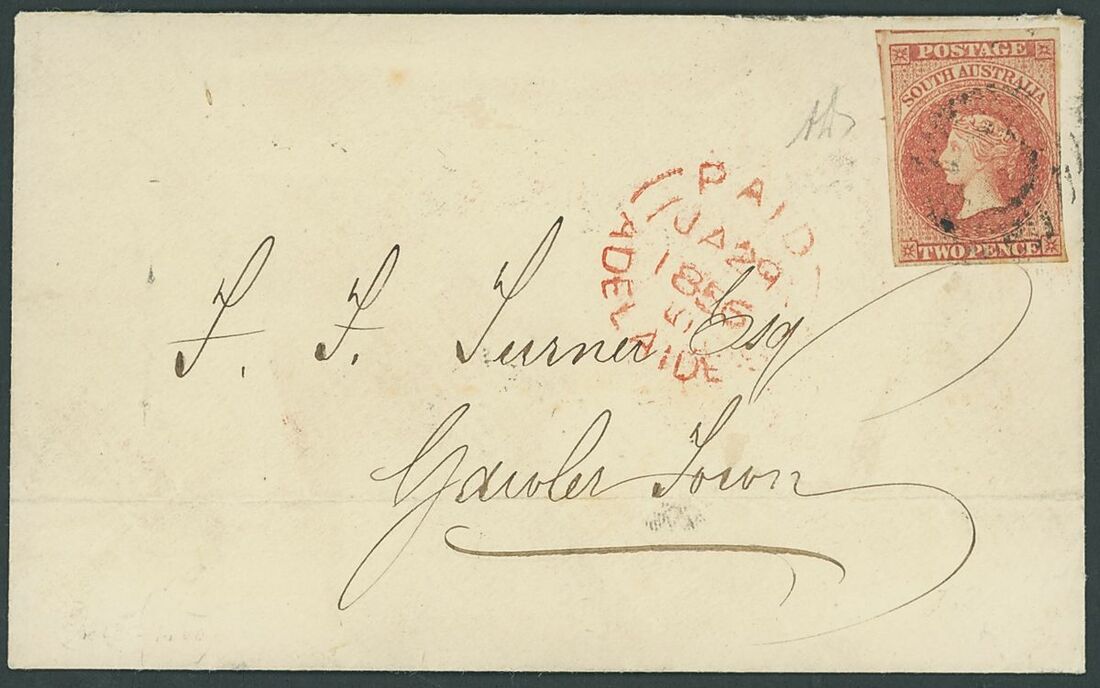 POSTAGE
SOUTH AUSTRALIA
TWO PENCE
PAID
JA 29
1856
ADELAIDE
F. F. Turner Esq
Gawler Town